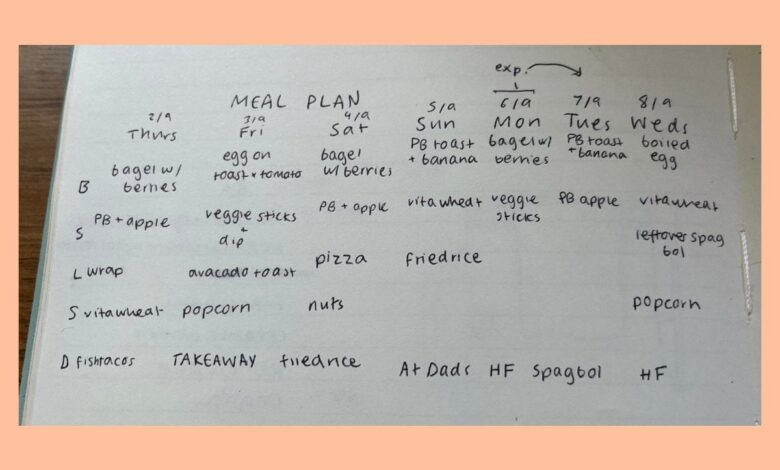 exp.
MEAL PLAN
2/9 3/9 4/9 5/9 6/9 7/9 8/9
Thurs Fri Sat Sun Mon Tues Weds
B bagel w/ berries egg on toast + tomato bagel w/ berries PB toast + banana bagel w/ berries PB toast + banana boiled egg
S PB + apple veggie sticks + dip PB + apple vitawheat veggie sticks PB apple vitawheat
L wrap avacado toast pizza friedrice leftover spag bol
S vitawheat popcorn nuts popcorn
D fishtacos TAKEAWAY friedrice At Dads HF Spagbol HF